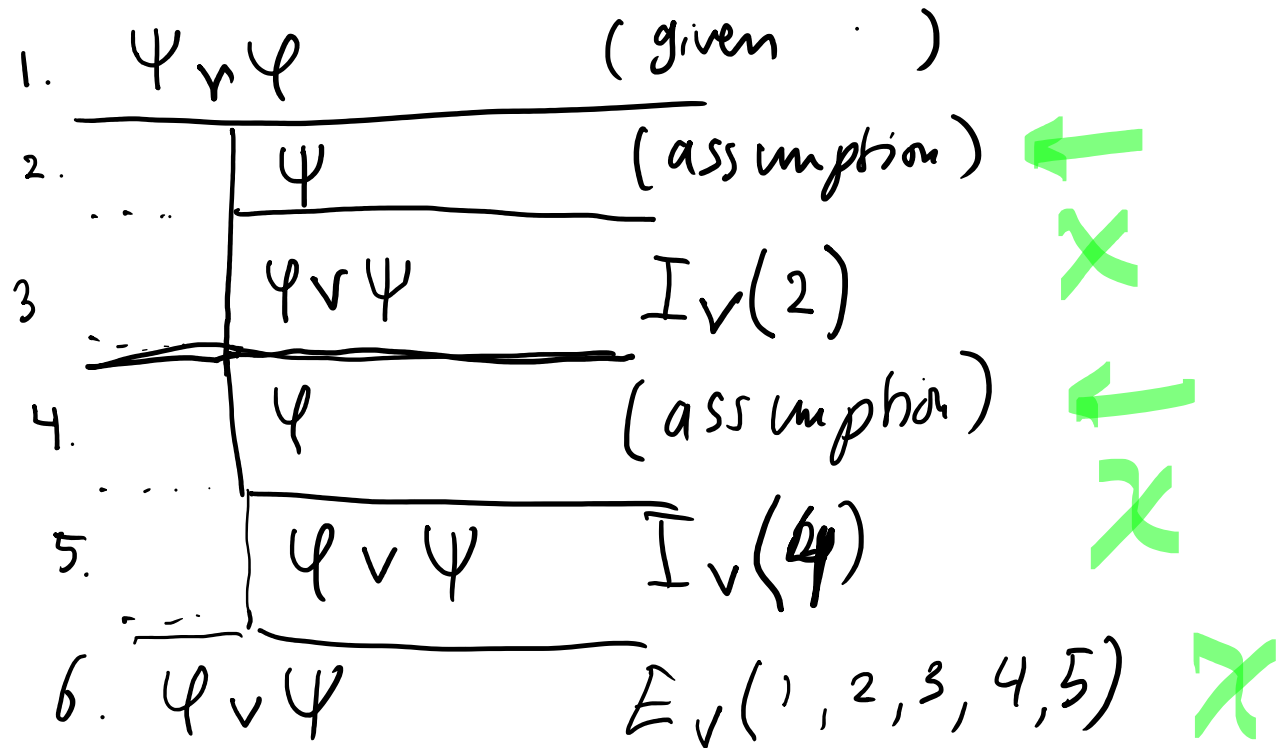 1. Ψ ∨ φ (given)
2. Ψ (assumption)
3 φ ∨ Ψ I∨(2)
4. φ (assumption)
5. φ ∨ Ψ I∨(4)
6. φ ∨ Ψ E∨(1, 2, 3, 4, 5)